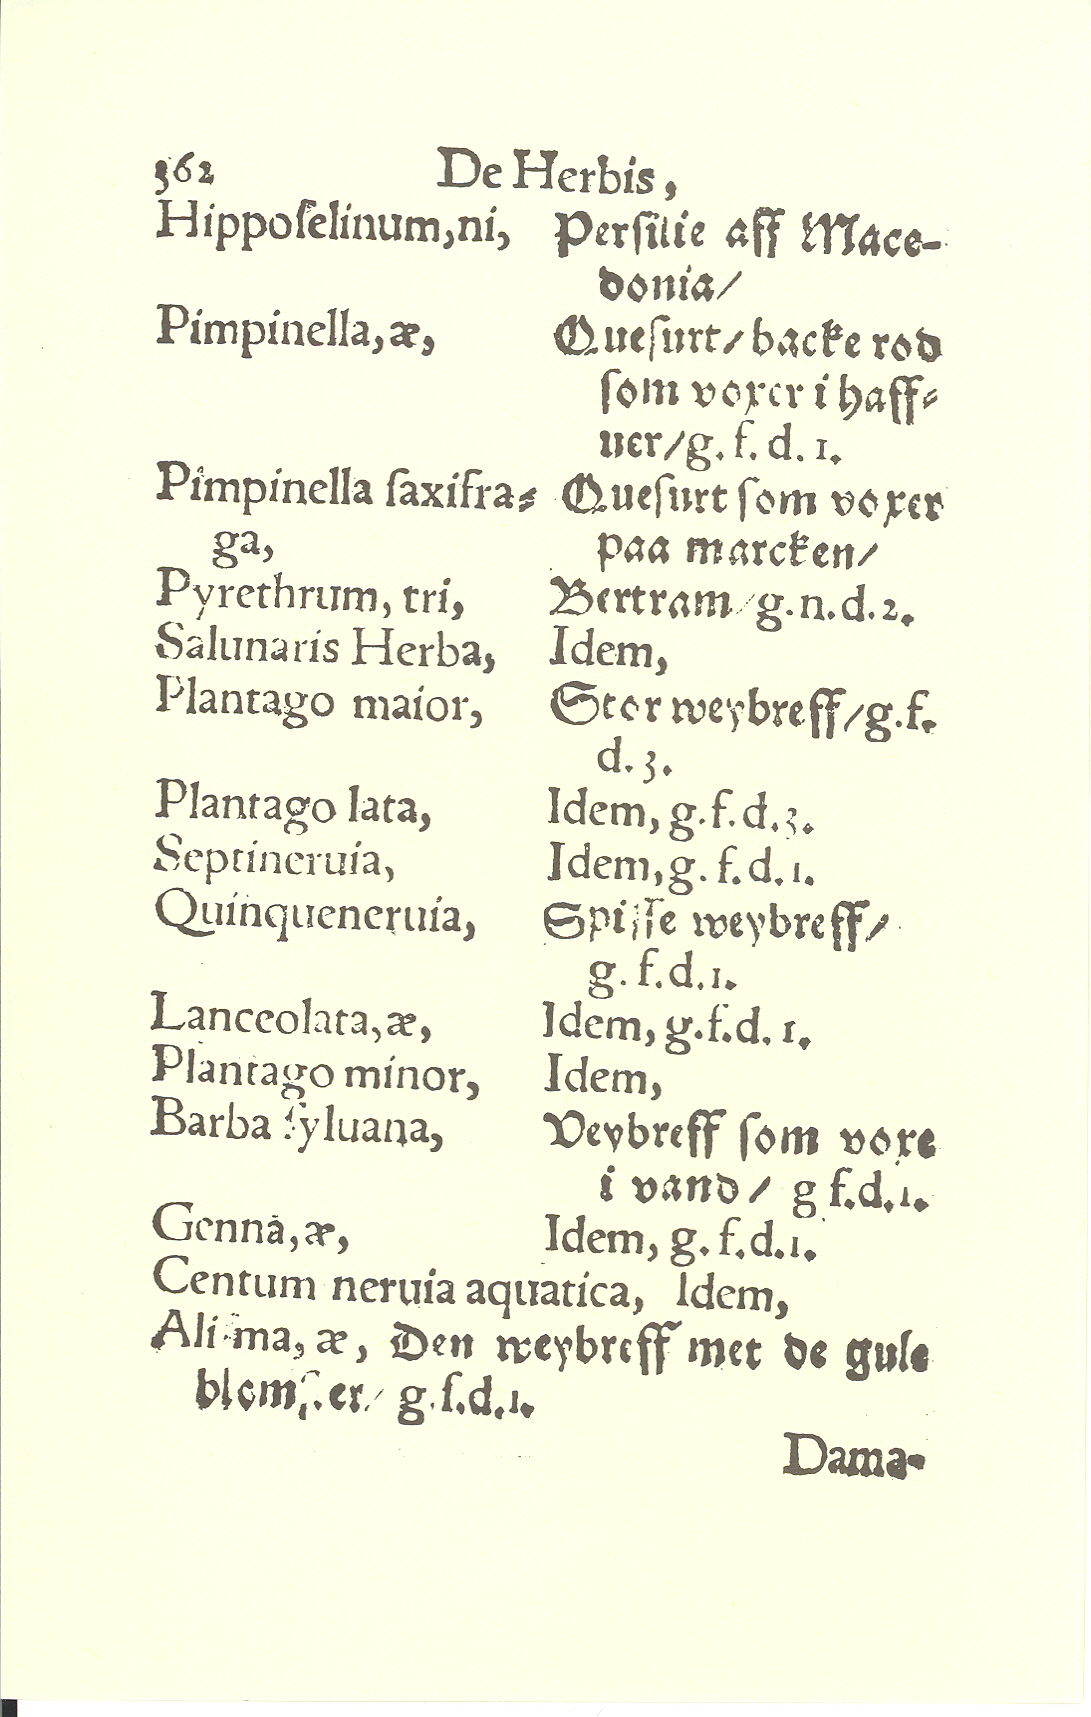 362 De Herbis,
Hippoſelinum,ni, Perſilie aff Mace-
donia/
Pimpinella,æ, Queſurt/backe rod
ſom voxer i haff⸗
uer/g. f. d. 1.
Pimpinella ſaxifra⸗ Queſurt ſom voxer
ga, paa marcken/
Pyrethrum, tri, Bertram/g.n.d.2.
Salunaris Herba, Idem,
Plantago maior, Stor weybreff/g.f.
d.3.
Plantago lata, Idem, g.f.d.3.
Septineruia, Idem,g. f.d.1.
Quinqueneruia, Spiſſe weybreff/
g. f.d.1.
Lanceolata,æ, Idem, g.f.d. 1.
Plantago minor, Idem,
Barba ſyluana, Veybreff ſom voxe
i vand/ g f.d.1.
Genna,æ, Idem, g. f.d.1.
Centum neruia aquatica, Idem,
Aliſma, æ, Den weybreff met de gule
blomſter/ g.f.d.1.
Dama-